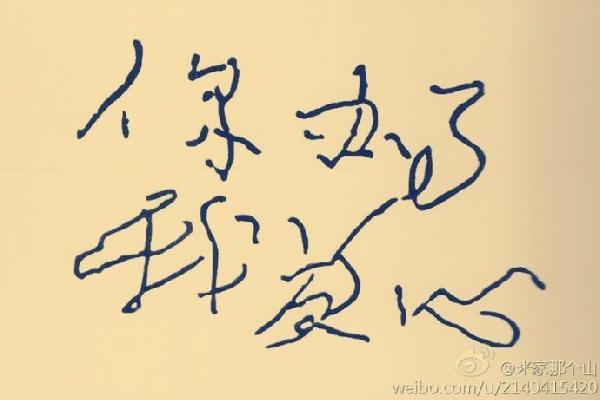 办了
我爱心
@米家那个山
weibo.com/u/2140415420